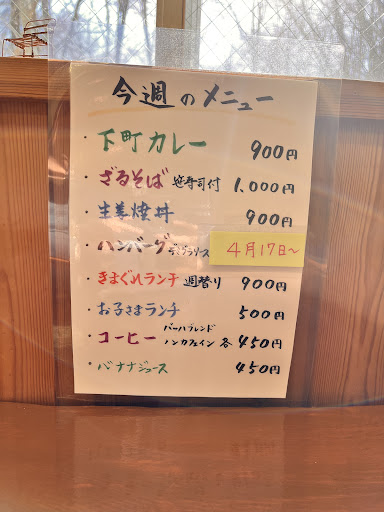 今週のメニュー
・下町カレー 900円
・ざるそば 笹寿司付 1,000円
・生姜焼丼 900円
・ハンバーグ 4月17日〜
・きまぐれランチ 週替り 900円
・お子さまランチ 500円
・コーヒー バーハラブレンド ノンカフェイン 各450円
・バナナジュース 450円